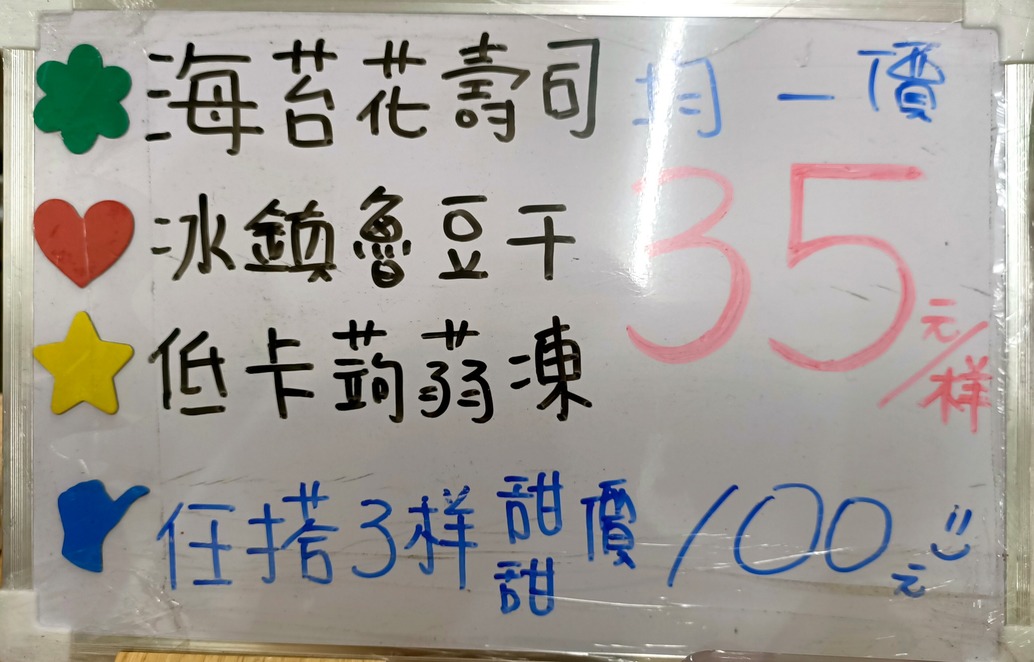 海苔花壽司 均一價
冰鎮魯豆干 35元/樣
低卡蒟蒻凍
任搭3樣甜甜價/100元